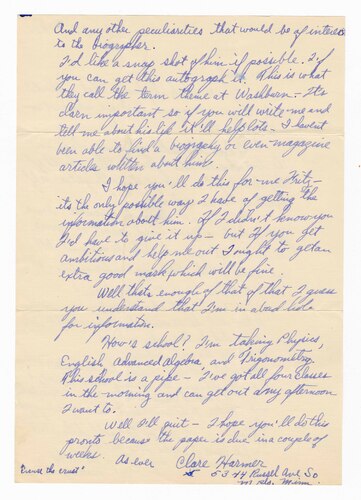 And any other peculiarities that would be of interest
to the biographer.
I'd like a snap shot of him if possible. If
you can get this autograph it. This is what
they call the term theme at Washburn - Its
darn important so if you will write me and
tell me about his life it'll help lots - I havent
been able to find a biography or even magazine
article written about him.
I hope you'll do this for me Fritz -
its the only possible way I have of getting the
information about him. If I didn't know you
I'd have to give it up - but if you get
ambitious and help me out I ought to get an
extra good mark which will be fine.
Well thats enough of that of that I guess
you understand that I'm in a bad hole
for information.
How's school? I'm taking Physics,
English, Advanced algebra and Trigonometry.
This school is a pipe - I've got all four classes
in the morning and can get out any afternoon
I want to.
Well I'll quit - I hope you'll do this
pronto because the paper is due in a couple of
weeks. As ever Clare Harmer
5344 Russel Ave So
"Excuse the crust" Mpls. Minn.